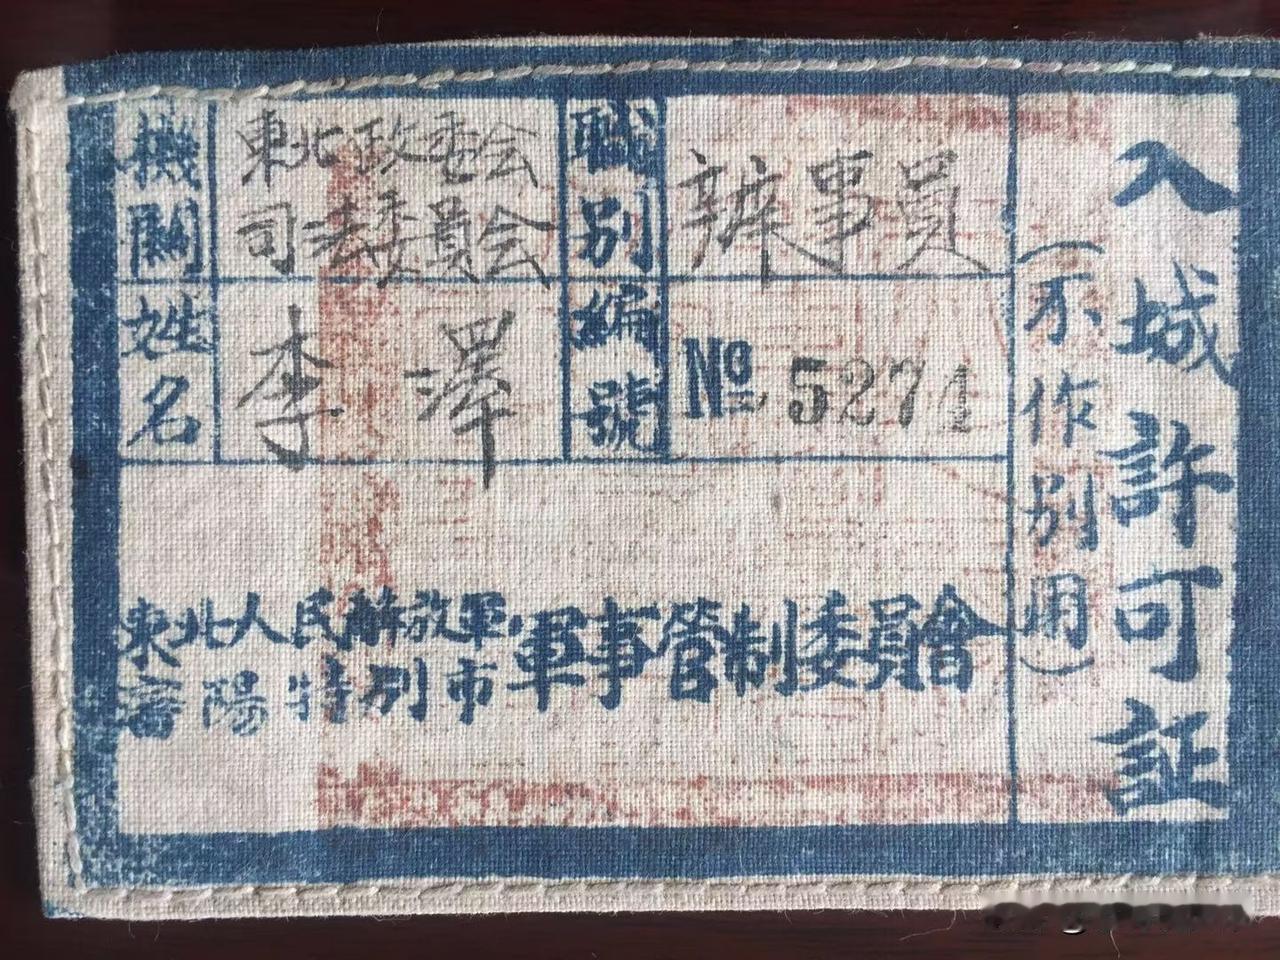 入城許可証
（不作別用）
機關
東北政委会
司法委員会
職別
辦事員
姓名
李澤
編號
№ 5271
東北人民解放軍
瀋陽特別市
軍事管制委員會